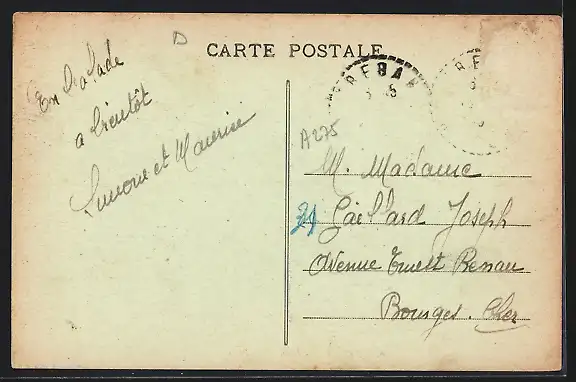 D
CARTE POSTALE
En balade
a bientôt
Simone et Maurice
REBA
A275
M. Madame
31
Gaillard Joseph
Avenue Ernest Renan
Bourges. Cher